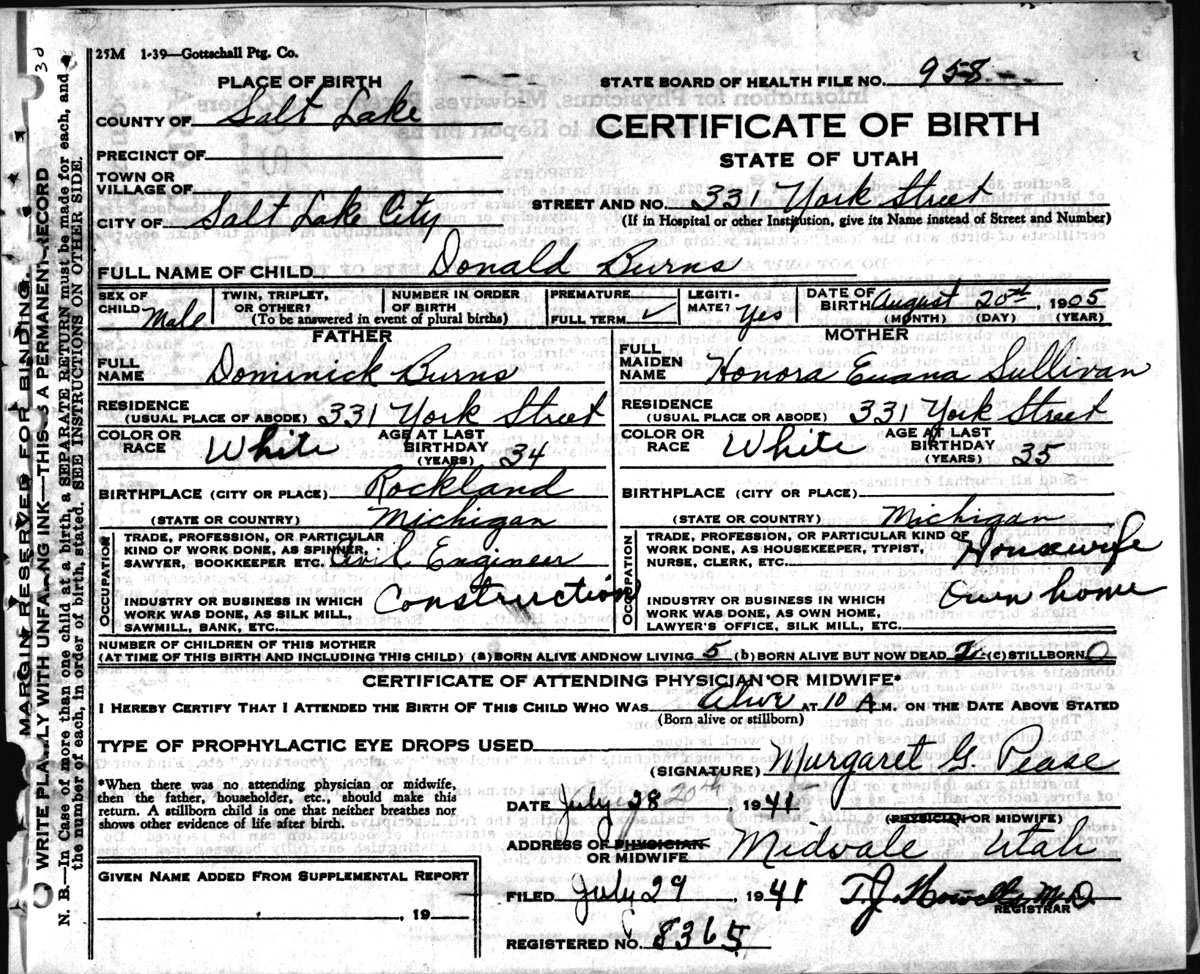 25M 1-39—Gottschall Ptg. Co.
PLACE OF BIRTH
STATE BOARD OF HEALTH FILE NO. 958
COUNTY OF Salt Lake
CERTIFICATE OF BIRTH
PRECINCT OF
STATE OF UTAH
TOWN OR
VILLAGE OF
STREET AND NO. 331 York Street
CITY OF Salt Lake City
(If in Hospital or other Institution, give its Name instead of Street and Number)
FULL NAME OF CHILD Donald Burns
SEX OF CHILD Male
TWIN, TRIPLET, OR OTHER?
NUMBER IN ORDER OF BIRTH
(To be answered in event of plural births)
PREMATURE
FULL TERM ✓
LEGITIMATE? Yes
DATE OF BIRTH August 20th, 1905
(MONTH) (DAY) (YEAR)
FATHER
FULL NAME Dominick Burns
RESIDENCE
(USUAL PLACE OF ABODE) 331 York Street
COLOR OR RACE White AGE AT LAST BIRTHDAY (YEARS) 34
BIRTHPLACE (CITY OR PLACE) Rockland
(STATE OR COUNTRY) Michigan
OCCUPATION
TRADE, PROFESSION, OR PARTICULAR
KIND OF WORK DONE, AS SPINNER,
SAWYER, BOOKKEEPER ETC. Civil Engineer
INDUSTRY OR BUSINESS IN WHICH
WORK WAS DONE, AS SILK MILL,
SAWMILL, BANK, ETC. Construction
MOTHER
FULL MAIDEN NAME Honora Sullivan
RESIDENCE
(USUAL PLACE OR ABODE) 331 York Street
COLOR OR RACE White AGE AT LAST BIRTHDAY (YEARS) 35
BIRTHPLACE (CITY OR PLACE)
(STATE OR COUNTRY) Michigan
OCCUPATION
TRADE, PROFESSION, OR PARTICULAR KIND OF
WORK DONE, AS HOUSEKEEPER, TYPIST,
NURSE, CLERK, ETC. Housewife
INDUSTRY OR BUSINESS IN WHICH
WORK WAS DONE, AS OWN HOME,
LAWYER'S OFFICE, SILK MILL, ETC. Own home
NUMBER OF CHILDREN OF THIS MOTHER
(AT TIME OF THIS BIRTH AND INCLUDING THIS CHILD) (a) BORN ALIVE AND NOW LIVING 5 (b) BORN ALIVE BUT NOW DEAD 2 (c) STILLBORN 0
CERTIFICATE OF ATTENDING PHYSICIAN OR MIDWIFE*
I HEREBY CERTIFY THAT I ATTENDED THE BIRTH OF THIS CHILD WHO WAS Alive AT 10 A M. ON THE DATE ABOVE STATED
(Born alive or stillborn)
TYPE OF PROPHYLACTIC EYE DROPS USED
(SIGNATURE) Margaret G. Pease
*When there was no attending physician or midwife,
then the father, householder, etc., should make this
return. A stillborn child is one that neither breathes nor
shows other evidence of life after birth.
DATE July 28 20th 1941
(PHYSICIAN OR MIDWIFE)
ADDRESS OF PHYSICIAN
OR MIDWIFE Midvale Utah
GIVEN NAME ADDED FROM SUPPLEMENTAL REPORT
, 19
FILED July 29, 1941 T. J. Howells M.D.
REGISTRAR
REGISTERED NO. 8365
MARGIN RESERVED FOR BINDING.
WRITE PLAINLY WITH UNFADING INK—THIS IS A PERMANENT RECORD
N. B.—In Case of more than one child at a birth, a SEPARATE RETURN must be made for each, and
the number of each, in order of birth, stated. SEE INSTRUCTIONS ON OTHER SIDE.